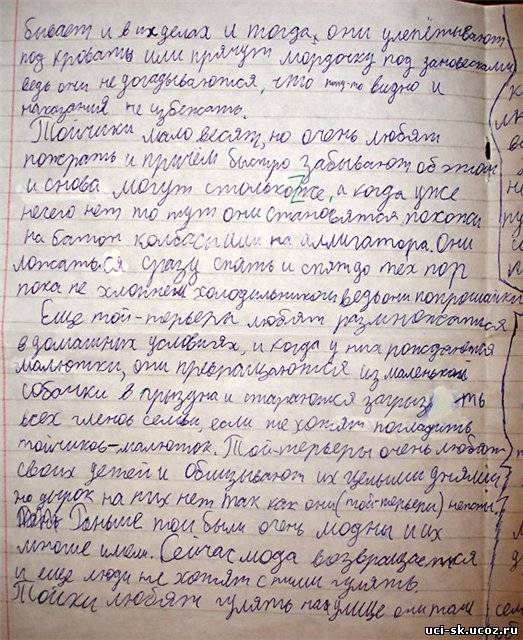 бывает и в их делах и тогда, они улепётывают
под кровать или прячут мордочку под зановесками
ведь они не догадываются, что видно и
наказания не избежать.
Тойчики мало весят, но очень любят
пожрать и причём быстро забывают об этом
и снова могут столько же, а когда уже
нечего нет то тут они становятся похожи
на батон колбасы или на аллигатора. Они
ложаться сразу спать и спят до тех пор
пока не хлопнеш холодильником ведь они попрошайки
Еще той-терьеры любят размножатся
в домашних условиях, и когда у них рождаются
малютки, они превращаются из маленькой
собачки в и стараются загрызть
всех членов семьи, если те хотят погладить
тойчиков-малюток. Той-терьеры очень любят
своих детей и облизывают их целыми днями
но на них нет так как они (той-терьеры)
Раньше тои были очень модны и их
многие имели. Сейчас мода возвращается
и еще люди не хотят с ними гулять.
Тойки любят гулять на улице они такие
uci-sk.ucoz.ru